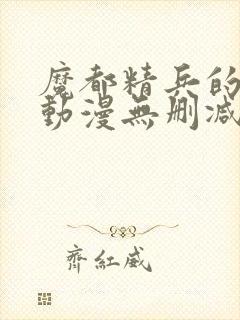 魔都精兵的
動漫無刪減
齊紅威